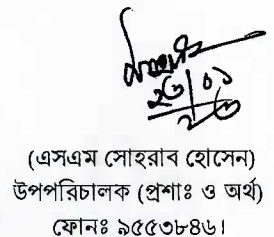 ২৩/০১
(এসএম সোহরাব হোসেন)
উপপরিচালক (প্রশাঃ ও অর্থ)
ফোনঃ ৯৫৫৩৮৪৬।